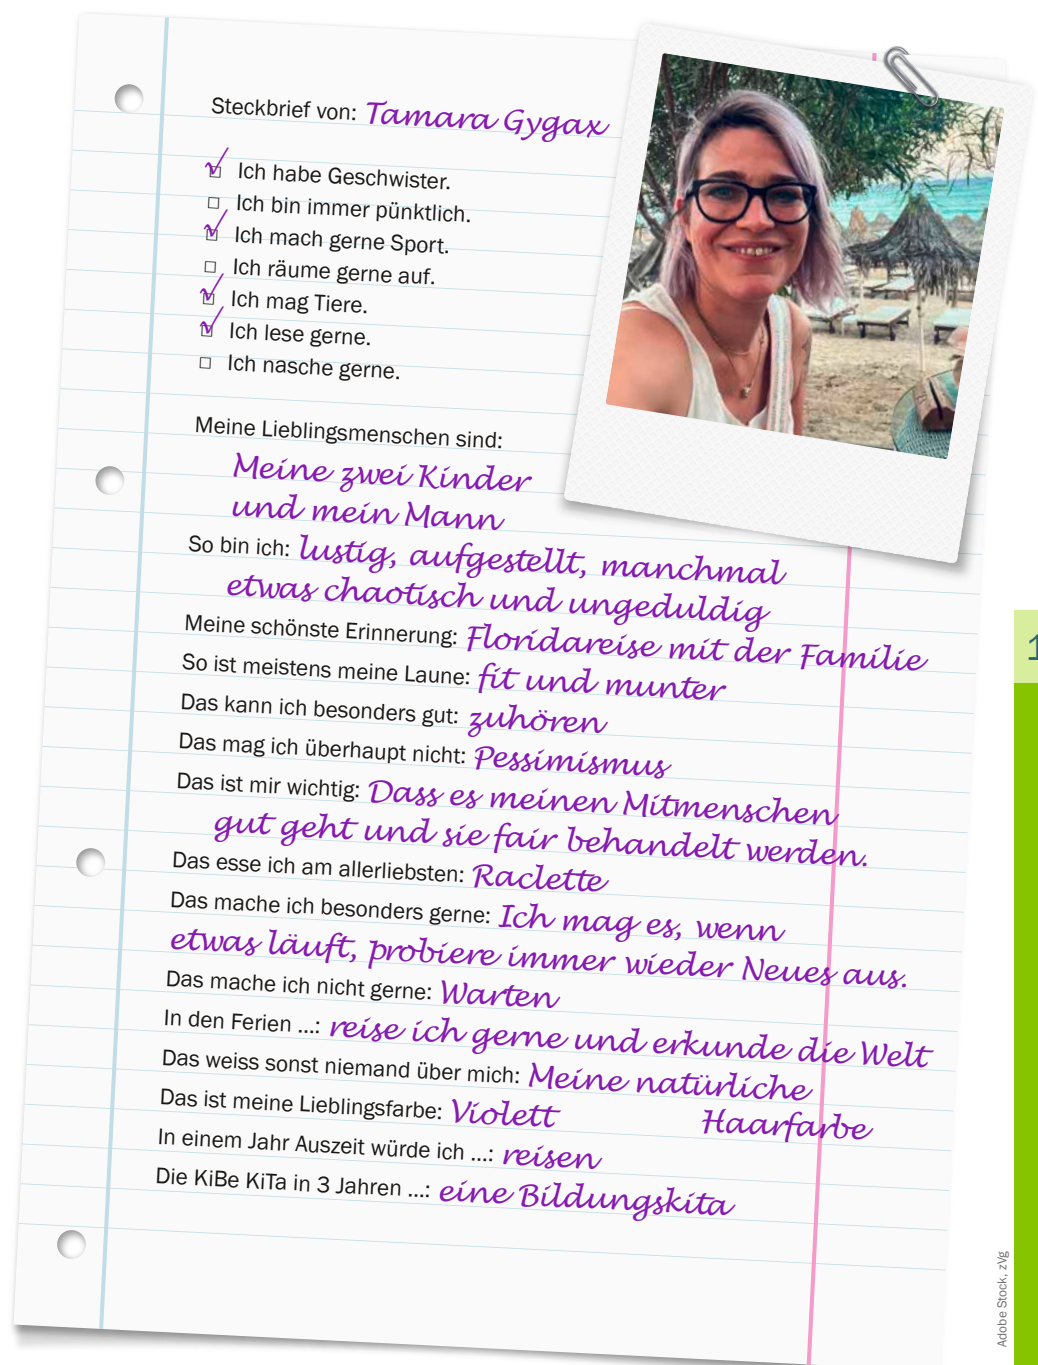 Steckbrief von: Tamara Gygax
Ich habe Geschwister.
Ich bin immer pünktlich.
Ich mach gerne Sport.
Ich räume gerne auf.
Ich mag Tiere.
Ich lese gerne.
Ich nasche gerne.
Meine Lieblingsmenschen sind:
Meine zwei Kinder
und mein Mann
So bin ich: lustig, aufgestellt, manchmal
etwas chaotisch und ungeduldig
Meine schönste Erinnerung: Floridareise mit der Familie
So ist meistens meine Laune: fit und munter
Das kann ich besonders gut: zuhören
Das mag ich überhaupt nicht: Pessimismus
Das ist mir wichtig: Dass es meinen Mitmenschen
gut geht und sie fair behandelt werden.
Das esse ich am allerliebsten: Raclette
Das mache ich besonders gerne: Ich mag es, wenn
etwas läuft, probiere immer wieder Neues aus.
Das mache ich nicht gerne: Warten
In den Ferien ...: reise ich gerne und erkunde die Welt
Das weiss sonst niemand über mich: Meine natürliche
Haarfarbe
Das ist meine Lieblingsfarbe: Violett
In einem Jahr Auszeit würde ich ...: reisen
Die KiBe KiTa in 3 Jahren ...: eine Bildungskita
Adobe Stock, zVg